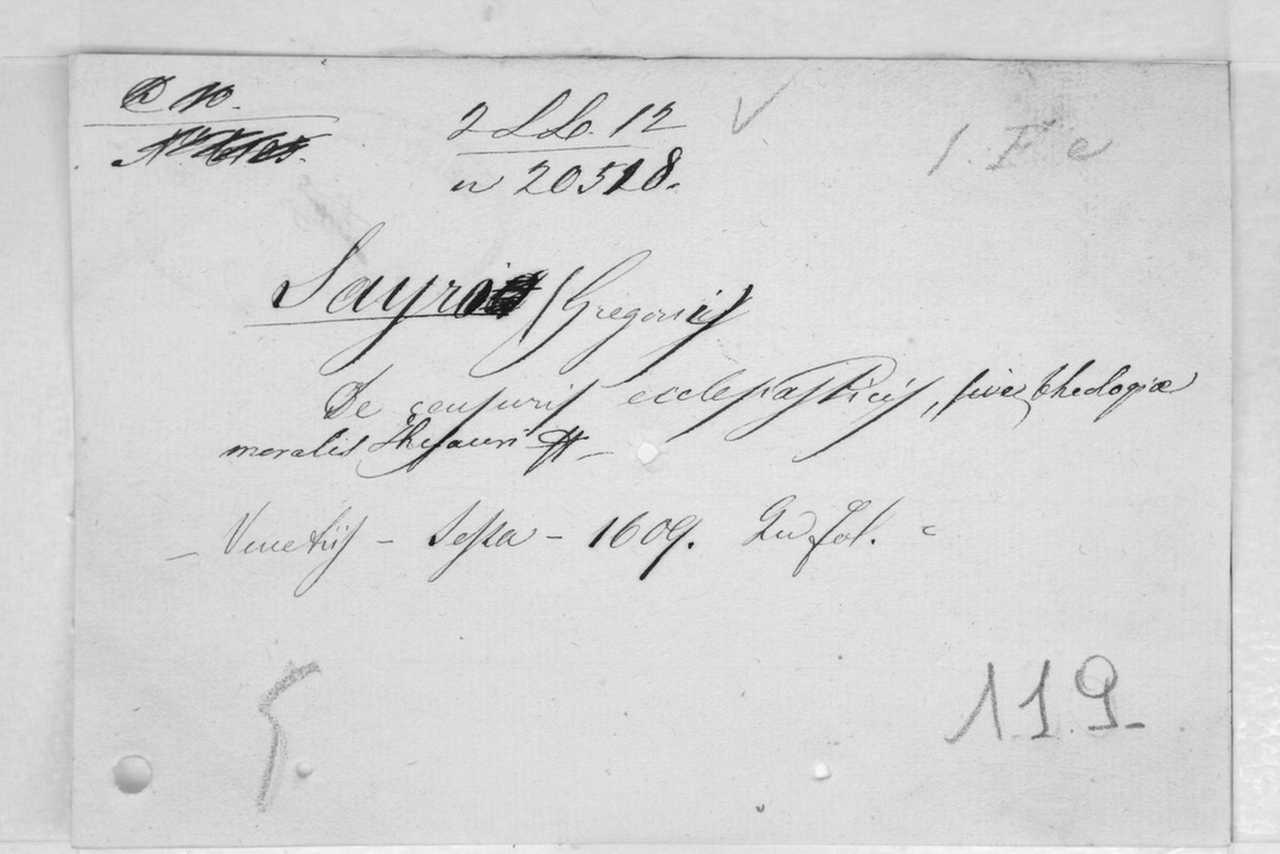 2 LLo. 12 V
n 20518.
1. F e
Sayri (Gregorii)
De censuris ecclesiasticis, sive theologiæ
moralis thesauri
– Venetiis – Sessa – 1609. In fol.
119.